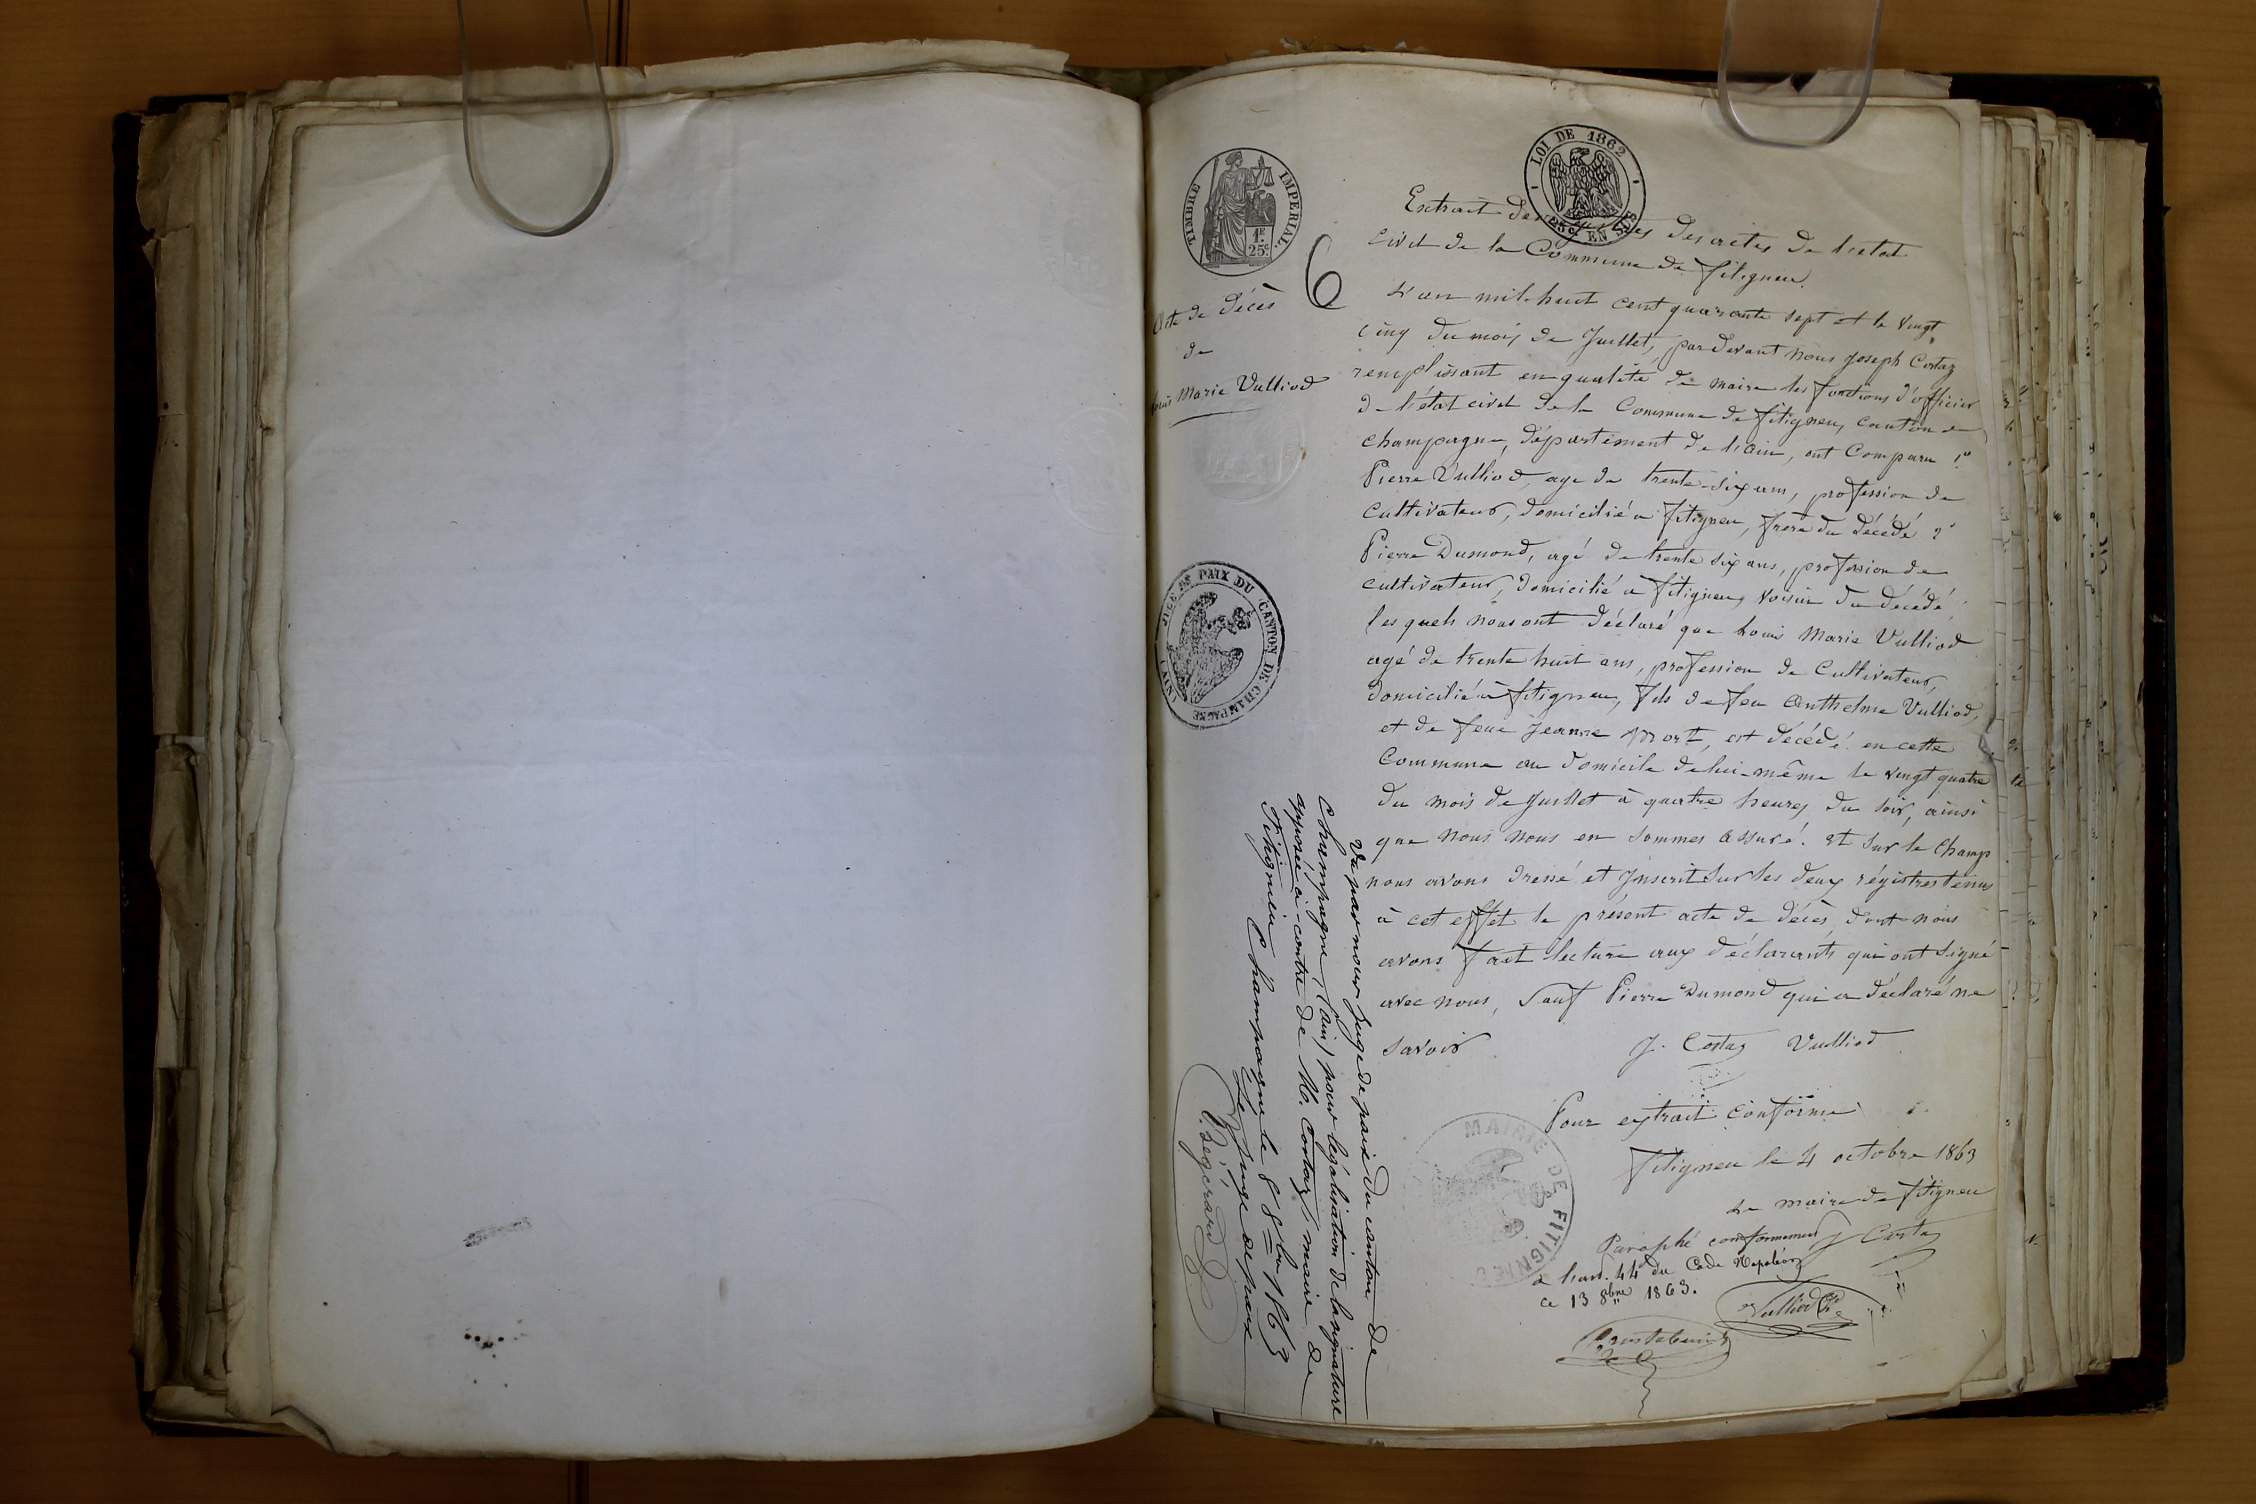 TIMBRE IMPERIAL.
1F. 25c.
LOI DE 1862
25c EN SUS
6
Acte de décès
de
Louis Marie Vulliod
Extrait des registres des actes de l'état
civil de la Commune de fitigneu.
L'an mil-huit cent quarante sept et le vingt
cinq du mois de Juillet, par devant nous joseph Costaz
remplissant en qualité de maire les fonctions d'officier
de l'état civil de la Commune de fitigneu, canton de
champagne, département de l'ain, ont Comparu 1º
Pierre Vulliod, age de trente-six ans, profession de
Cultivateur, domicilié a fitigneu, frère du décédé 2º
Pierre Dumond, agé de trente six ans, profession de
cultivateur, domicilié a fitigneu, voisin du décédé,
lesquels nous ont déclaré que Louis Marie Vulliod
agé de trente huit ans, profession de Cultivateur,
domicilié à fitigneu, fils de feu Anthelme Vulliod,
et de feue jeanne, est décédé en cette
Commune au domicile de lui-même le vingt quatre
du mois de Juillet à quatre heures du soir, ainsi
que nous nous en sommes assuré. et sur le champ
nous avons dressé et Jnscrit sur les deux régistres tenus
à cet effet le présent acte de décès, dont nous
avons fait lecture aux déclarants qui ont signé
avec nous, Sauf Pierre Dumond qui a déclaré ne
Savoir
J. Costaz Vulliod
Pour extrait conforme
fitigneu le 4 octobre 1863
Le maire de fitigneu
J Costaz
MAIRIE DE FITIGNIEU
Paraphé conformement
à l'art. 44 du Code Napoléon
ce 13 8bre 1863.
Vulliod
JUGE DE PAIX DU CANTON DE CHAMPAGNE (AIN)
Vu par nous Juge de paix du canton de
Champagne, (ain) pour légalisation de la signature
apposée ci-contre de M. Costaz, maire de
fitignieu Champagne le 8 8bre 1863
Le juge de paix